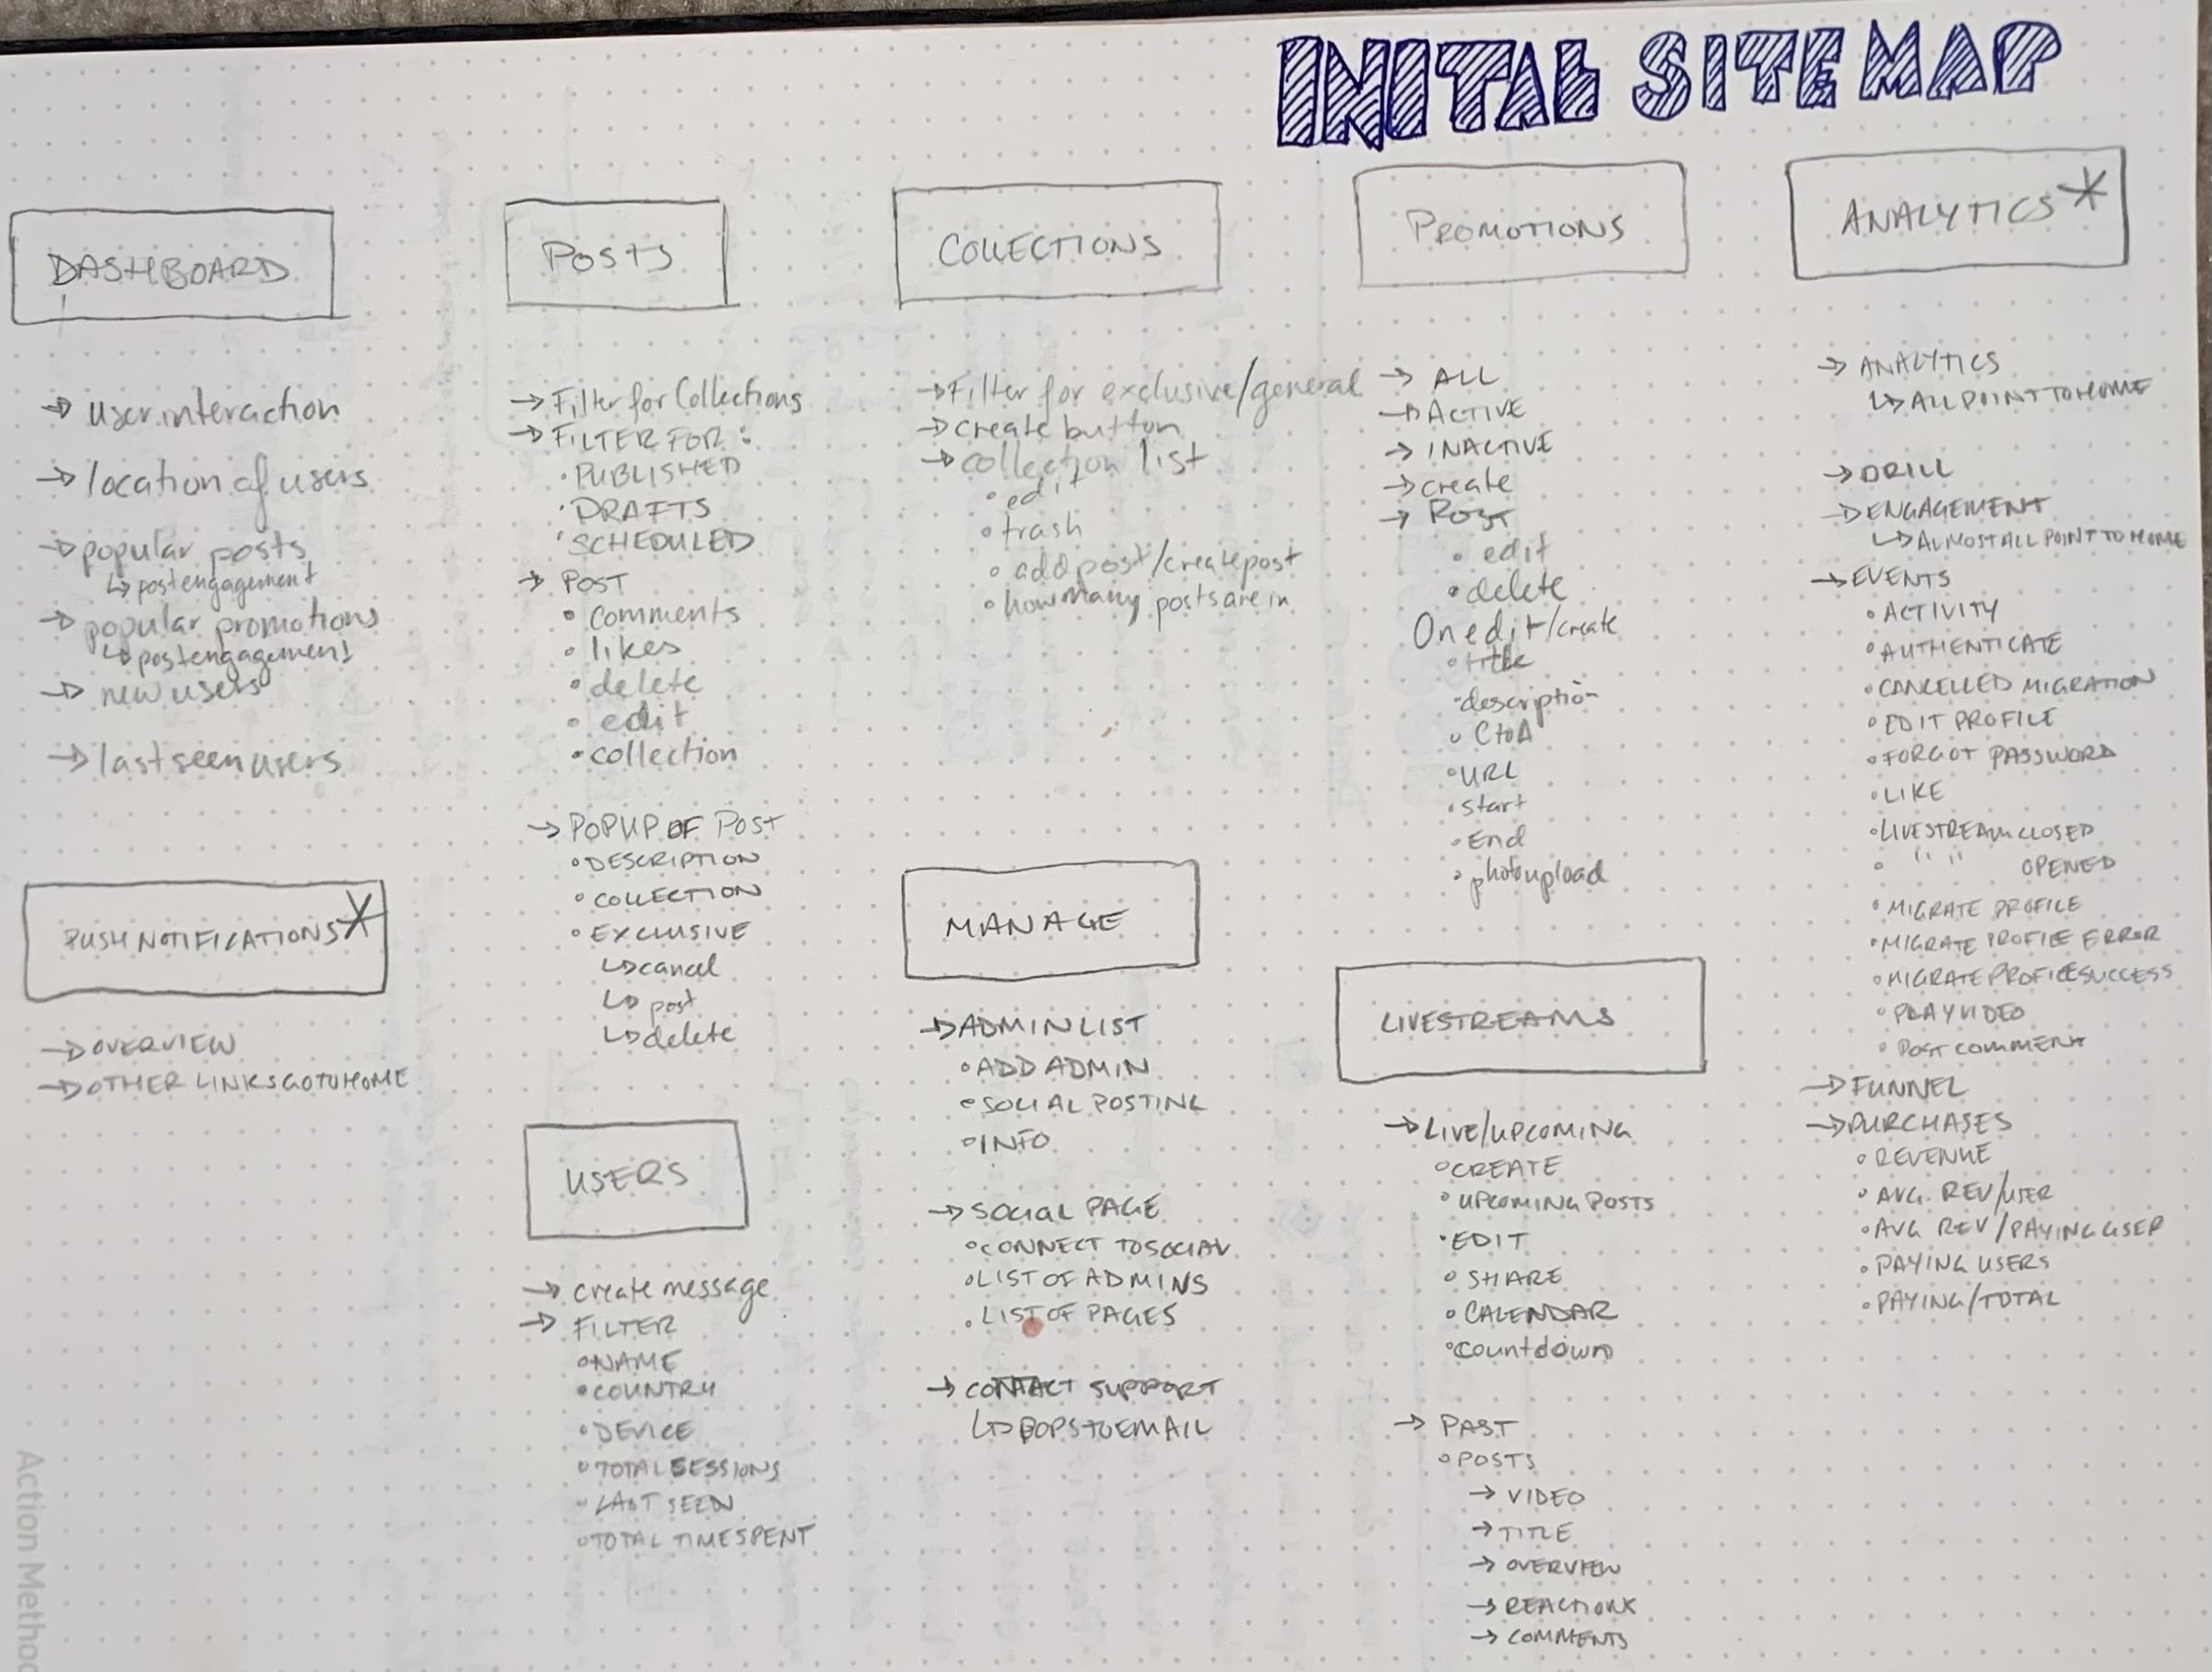 INITAL SITE MAP
DASHBOARD
→ user interaction
→ location of users
→ popular posts
↳ post engagement
→ popular promotions
↳ post engagement
→ new users
→ last seen users
PUSH NOTIFICATIONS *
→ OVERVIEW
→ OTHER LINKS GO TO HOME
POSTS
→ Filter for Collections
→ FILTER FOR:
• PUBLISHED
• DRAFTS
• SCHEDULED
→ POST
• comments
• likes
• delete
• edit
• collection
→ POPUP OF POST
• DESCRIPTION
• COLLECTION
• EXCLUSIVE
↳ cancel
↳ post
↳ delete
USERS
→ create message
→ FILTER
• NAME
• COUNTRY
• DEVICE
• TOTAL SESSIONS
• LAST SEEN
• TOTAL TIME SPENT
COLLECTIONS
→ Filter for exclusive/general
→ create button
→ collection list
• edit
• trash
• add post/create post
• how many posts are in
MANAGE
→ ADMIN LIST
• ADD ADMIN
• SOCIAL POSTING
• INFO
→ SOCIAL PAGE
• CONNECT TO SOCIAL
• LIST OF ADMINS
• LIST OF PAGES
→ CONTACT SUPPORT
↳ POPS TO EMAIL
PROMOTIONS
→ ALL
→ ACTIVE
→ INACTIVE
→ create
→ POST
• edit
• delete
On edit/create
• title
• description
• CtoA
• URL
• start
• End
• photo upload
LIVESTREAMS
→ LIVE/UPCOMING
• CREATE
• UPCOMING POSTS
• EDIT
• SHARE
• CALENDAR
• countdown
→ PAST
• POSTS
→ VIDEO
→ TITLE
→ OVERVIEW
→ REACTIONS
→ COMMENTS
ANALYTICS *
→ ANALYTICS
↳ ALL POINT TO HOME
→ DRILL
→ ENGAGEMENT
↳ ALMOST ALL POINT TO HOME
→ EVENTS
• ACTIVITY
• AUTHENTICATE
• CANCELLED MIGRATION
• EDIT PROFILE
• FORGOT PASSWORD
• LIKE
• LIVESTREAM CLOSED
• " " OPENED
• MIGRATE PROFILE
• MIGRATE PROFILE ERROR
• MIGRATE PROFILE SUCCESS
• PLAY VIDEO
• POST COMMENT
→ FUNNEL
→ PURCHASES
• REVENUE
• AVG. REV/USER
• AVG REV/PAYING USER
• PAYING USERS
• PAYING/TOTAL
Action Method